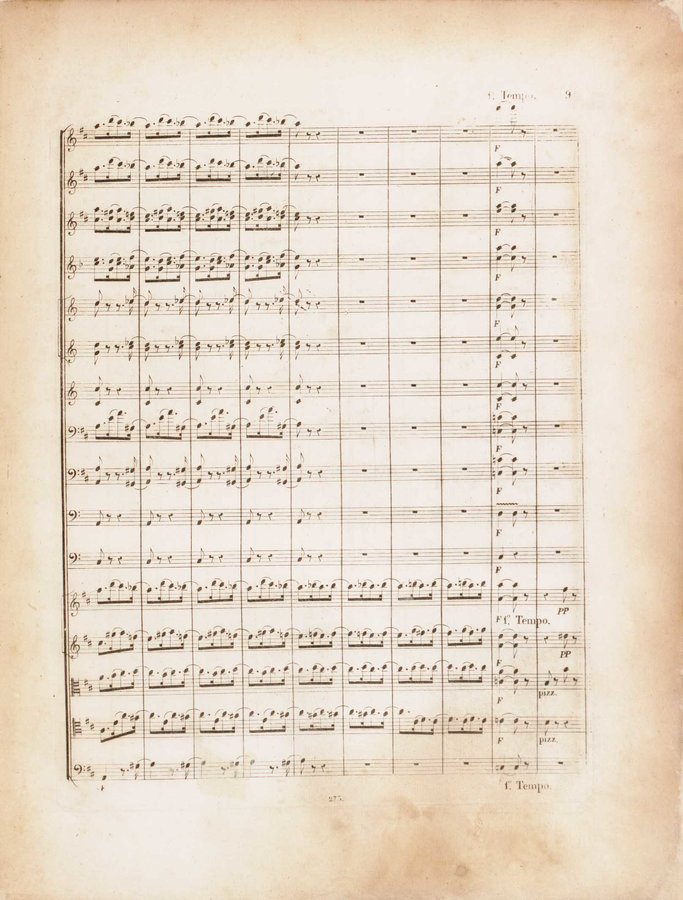 1º Tempo. 9
F
F
F
F
F
F
F
F
F
F
F
PP
F 1º Tempo.
PP
F
pizz.
F
pizz.
1º Tempo.
275.